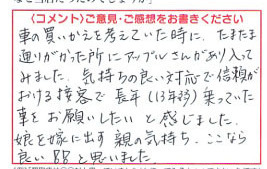 〈コメント〉ご意見・ご感想をお書きください
車の買いかえを考えていた時に、たまたま
通りがかった所にアップルさんがあり入って
みました。気持ちの良い対応で信頼が
おける接客で長年(13年務)乗っていた
車をお願いしたいと感じました。
娘を嫁に出す親の気持ち、ここなら
良い
と思いました